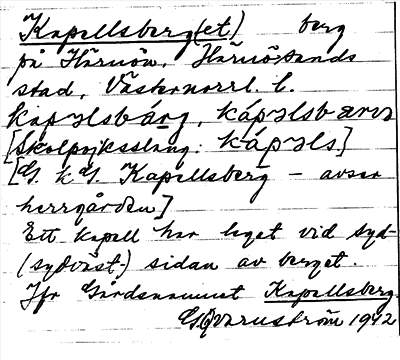 Kapellsberg(et) berg
på Härnön, Härnösands
stad, Västernorrl. l.
kapəlsbárg, kápəlsbærᴣ
[Skolpojksslang: kápəls]
[G. k G. Kapellsberg – avser
herrgården]
Ett kapell har legat vid syd-
(sydväst-) sidan av berget.
Jfr Gårdsnamnet Kapellsberg.
G. Qvarnström 1942